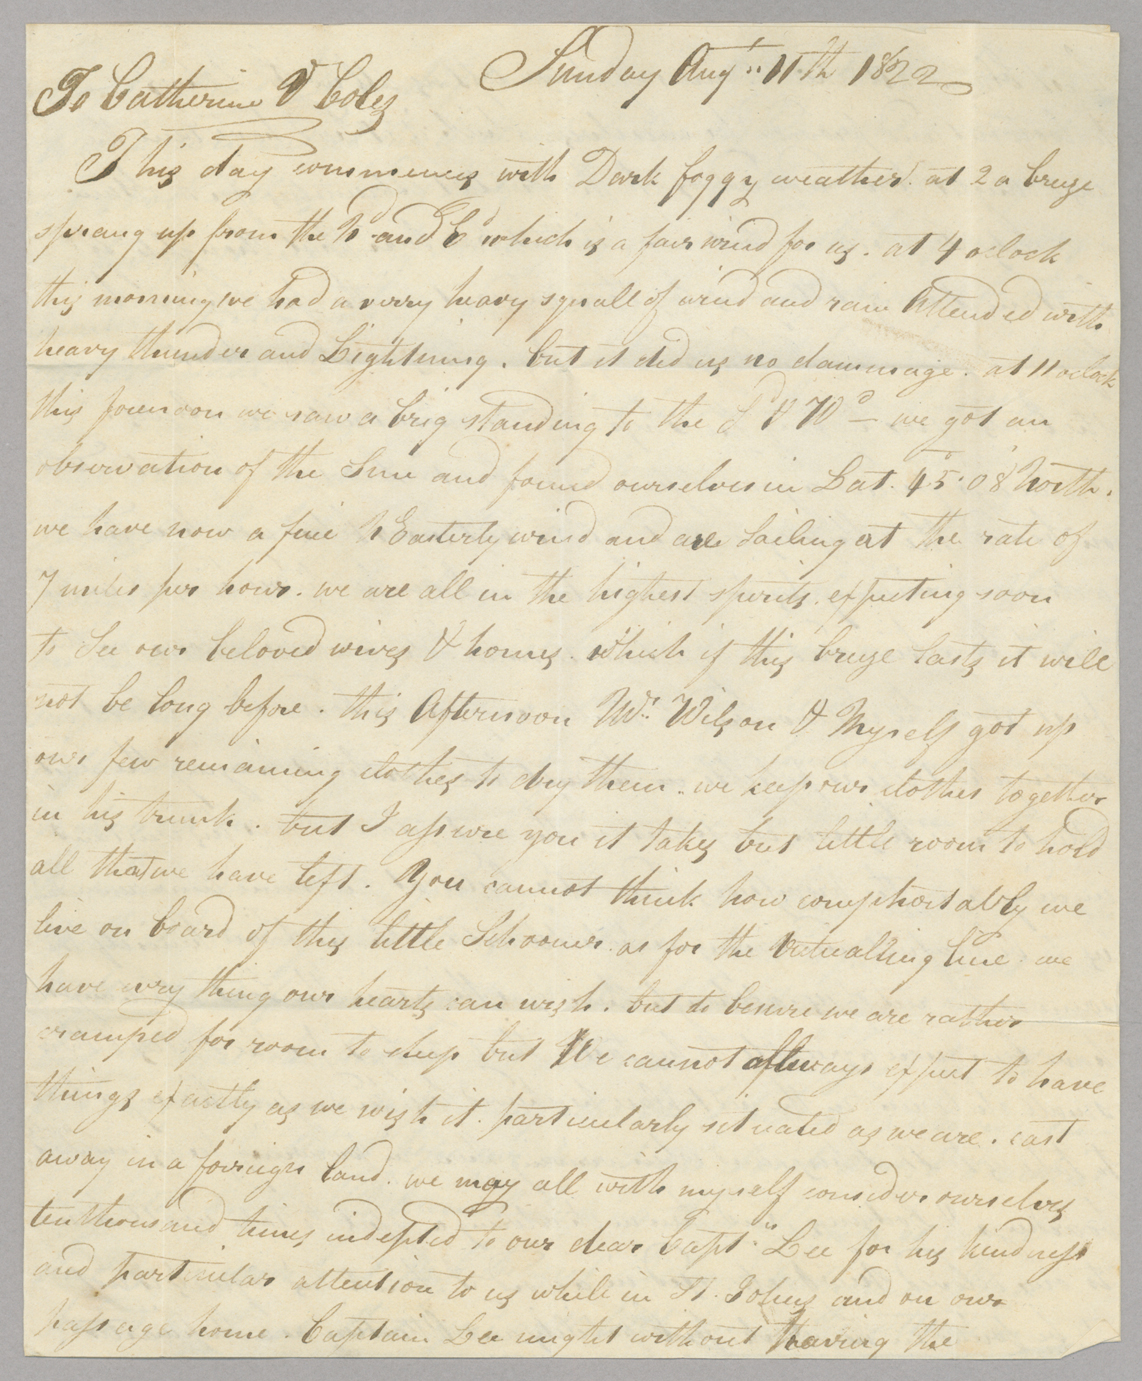 Sunday Augt. 11th 1822
To Catherine V Coles
This day commences with Dark foggy weather. at 2 a breze
sprang up from the Nd and Ed which is a fair wind for us. at 4 oclock
this morning we had a verry heavy squall of wind and rain Attended with
heavy thunder and Lightning. but it did us no dammage. at 11 oclock
this forenoon we saw a brig standing to the Sd & Wd — we got an
observation of the Sun and found ourselves in Lat. 45°.08' North.
we have now a fine N Easterly wind and are Sailing at the rate of
7 miles per hour. we are all in the highest spirits. expecting soon
to See our beloved wives & homes. which if this breze lasts it will
not be long before. this Afternoon Mr. Wilson & Myself got up
our few remaining clothes to dry them. we keep our clothes together
in his trunk. but I assure you it takes but little room to hold
all that we have left. You cannot think how comphortably we
live on board of this little Schooner. as for the Victualling line we
have evry thing our hearts can wish. but to besure we are rather
cramped for room to sleep but We cannot allways expect to have
things exactly as we wish it. particularly situated as we are. cast
away in a foreign land. we may all with myself consider ourselves
ten thousand times indepted to our dear Captn. Lee for his kindness
and particular attention to us while in St. Johns and on our
passage home. Captain Lee might without having the